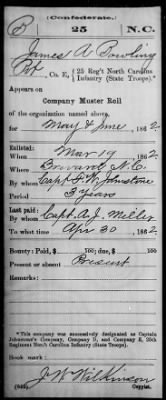 (Confederate.)
B 25 N.C.
James A. Bowling
Pvt, Co. E, 25 Reg't North Carolina
Infantry (State Troops).*
Appears on
Company Muster Roll
of the organization named above,
for May & June, 1862.
Enlisted:
When Mar 19, 1862.
Where Brevard N.C.
By whom Capt F. W. Johnstone
Period 3 years
Last paid:
By whom Capt. A. J. Miller
To what time Apr 30, 1862.
Bounty: Paid $ 100; due $ 100
Present or absent Present
Remarks:
*This company was successively designated as Captain
Johnstone's Company, Company D, and Company E, 25th
Regiment North Carolina Infantry (State Troops).
Book mark:
J. W. Wilkinson
(642) Copyist.